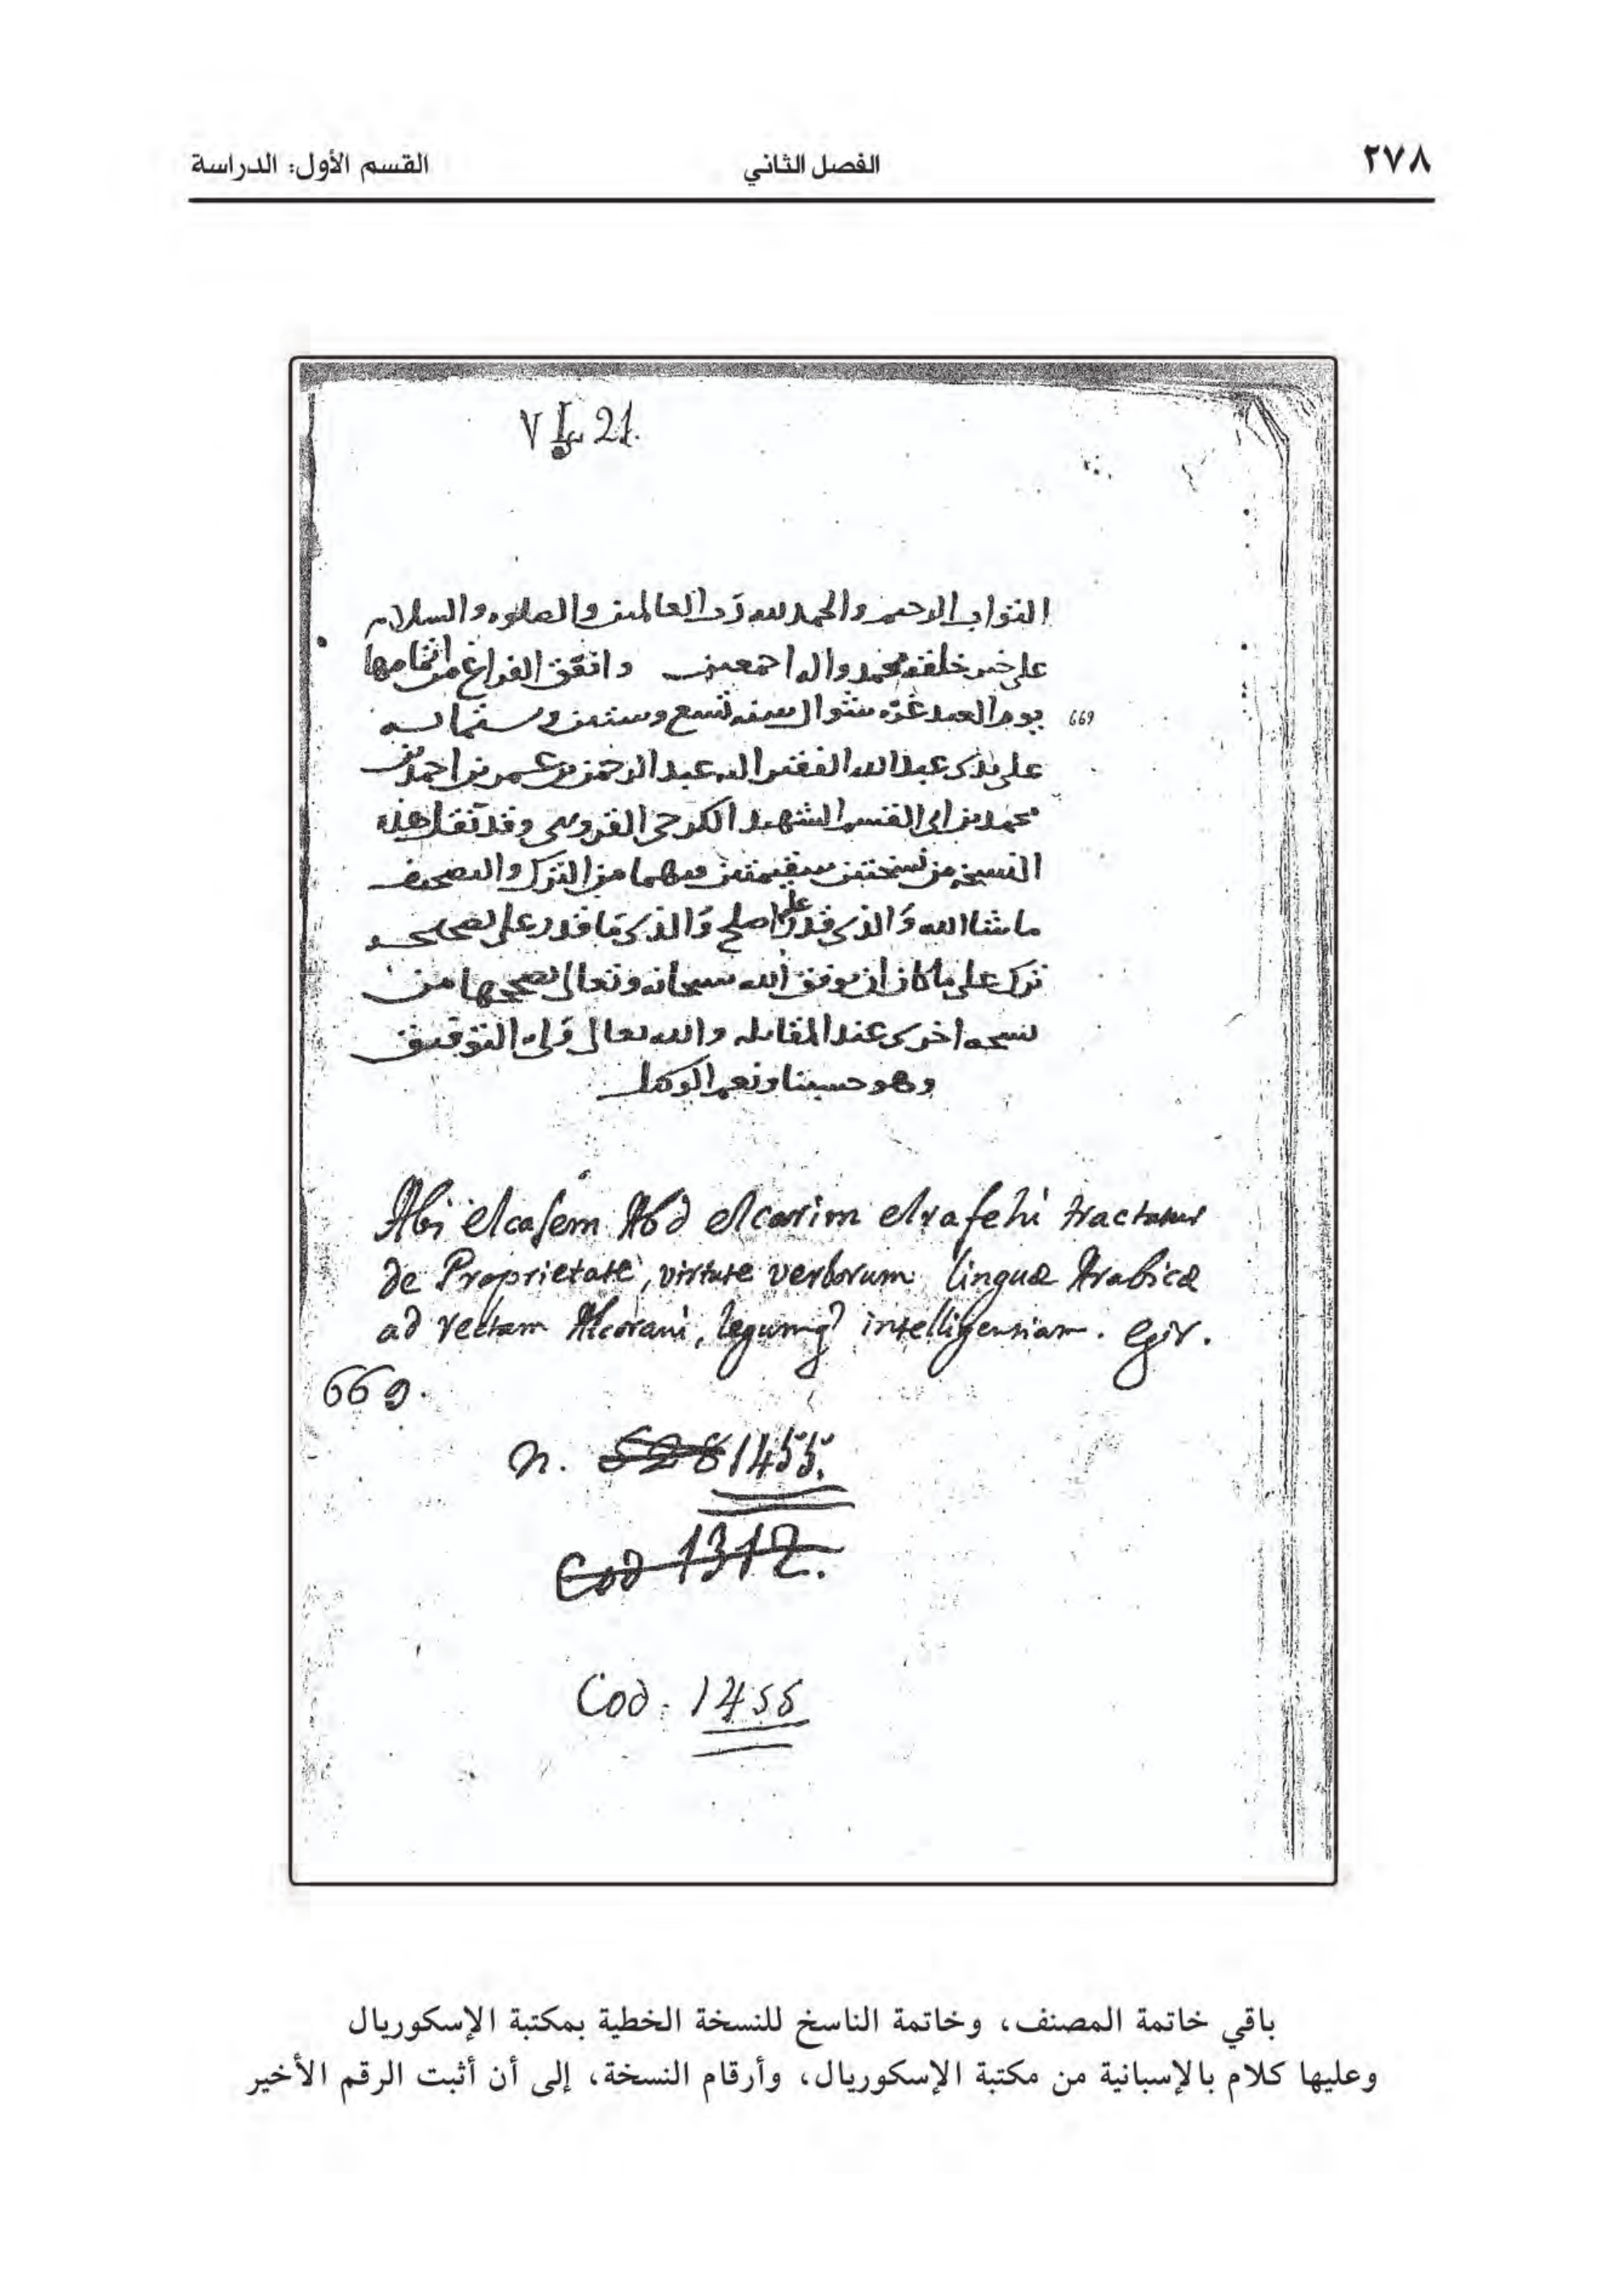 ٢٧٨ الفصل الثاني القسم الأول: الدراسة
V I 21.
التواب الرحيم والحمد لله رب العالمين والصلوه والسلام
على خير خلقه محمد واله اجمعين واتفق الفراغ من اتمامها
يوم العيد غرّه شوال سنه تسع وستين وستمايه 669
على يدي عبد الله الفقير اليه عبد الرحمن بن عمر بن احمد بن
محمد بن ابي القسم الشهيد الكرجي القزويني وقد نقل هذه
النسخه من نسختين سقيمتين وبهما من الترك والتصحيف
ما شا الله والذي قدر على اصلح والذي ما قدر على تصحيحه
ترك على ما كان ان يوفق الله سبحانه وتعالى تصحيحها من
نسخه اخرى عند المقابله والله تعالى ولي التوفيق
وهو حسبنا ونعم الوكيل
Abi elcasem Abd elcarim elrafehi tractatus
de Proprietate, virtute verborum linguæ Arabicæ
ad rectam Alcorani, legumq intelligensiam. Egir.
669.
n. 528 1455.
Cod 1312.
Cod. 1455
باقي خاتمة المصنف، وخاتمة الناسخ للنسخة الخطية بمكتبة الإسكوريال
وعليها كلام بالإسبانية من مكتبة الإسكوريال، وأرقام النسخة، إلى أن أثبت الرقم الأخير